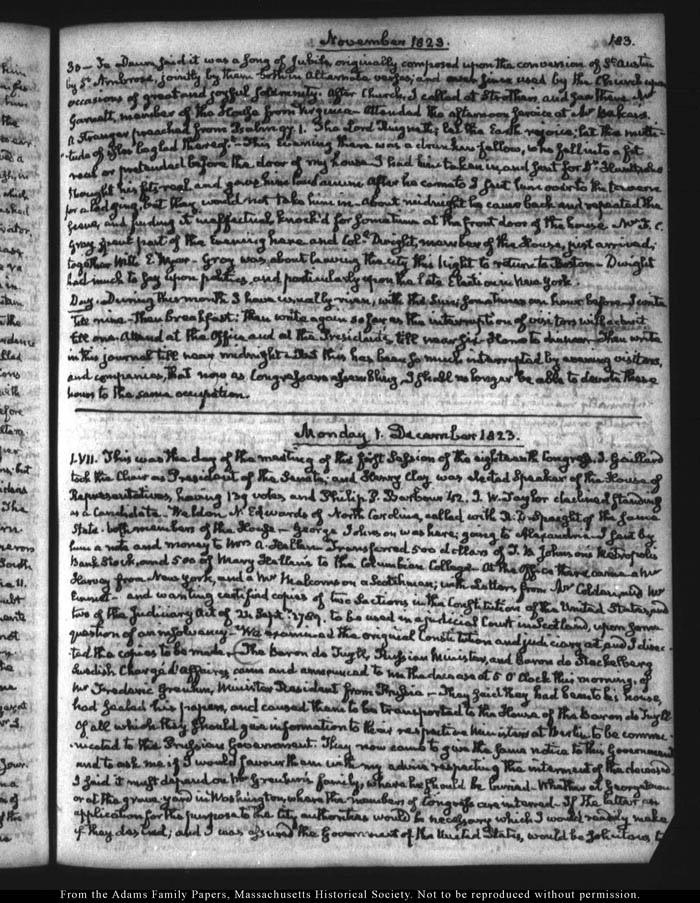 November 1823.
183.
30 – Te Deum said it was a song of Jubilee originally composed upon the conversion of St. Austin
by St. Ambrose, jointly by them both in alternate verses; and ever since used by the Church upon
occasions of great and joyful solemnity. After Church, I called at Strothers, and saw there Mr
Garnett, member of the House from Virginia – Attended the afternoon service at Mr Baker's.
A Stranger preached from Psalm 97. 1. The Lord reigneth; let the Earth rejoice; let the multi-
tude of Isles be glad thereof. – This Evening there was a drunken fellow, who fell into a fit
real or pretended before the door of my house. I had him taken in and sent for Dr. Huntt who
thought his fits real, and gave him laudanum. After he came to I sent him over to the tavern
for a lodging, but they would not take him in – about midnight he came back and repeated the
scene, and finding it ineffectual knock'd for sometime at the front door of the house. Mr F. C.
Gray spent part of the Evening here and Coll. Dwight, member of the House, just arrived;
together with E. Wyer. – Gray was about leaving the city this Night to return to Boston – Dwight
had much to say upon politics, and particularly upon the late Elections in New York.
Day. During this month I have usually risen, with the Sun; Sometimes an hour before – I write
till nine. Then breakfast. Then write again so far as the interruption of visitors will admit
till one. Attend at the Office and at the President's, till near six. Home to dinner. Then write
in this journal till near midnight. But this has been so much interrupted by evening visitors,
and companies, that now as Congress are assembling I shall no longer be able to devote these
hours to the same occupation.
Monday 1. December 1823.
I. VII. This was the day of the meeting of the first Session of the eighteenth Congress. J. Gaillard
took the Chair as President of the Senate, and Henry Clay was elected Speaker of the House of
Representatives, having 139 votes, and Philip P. Barbour 42. J. W. Taylor declined standing
as a Candidate. Weldon N. Edwards of North Carolina, called with R. D. Spaight of the same
State. both members of the House – George Johnson was here; going to Alexandria – I sent by
him a note and money to Mrs A. Hellen. Transferred 500 dollars of T. B. Johnson's Metropolis
Bank Stock, and 500 of Mary Hellen's to the Columbian College. At the Office there came a Mr
Harvey from New York, and a Mr Malcomson a Scotchman; with Letters from Mr Colden, and Mr
Emmet – and wanting certified copies of two Sections in the Constitution of the United States, and
two of the Judiciary Act of 24 Septr. 1789. to be used in a judicial Court in Scotland, upon some
question of an insolvency – We examined the original Constitution and judiciary act and I direc-
ted the copies to be made. – The Baron de Tuyll, Russian Minister, and Baron de Stackelberg
Swedish Chargé d'affaires, came and announced to me the decease at 5 O'Clock this morning, of
Mr Frederic Greuhm, Minister Resident from Prussia – They said they had been to his house,
had sealed his papers, and caused them to be transported to the House of the Baron de Tuyll
of all which they should give information to their respective Ministers at Berlin to be commu-
nicated to the Prussian Government. They now came to give the same notice to this Government
and to ask me if I would favour them with my advice respecting the interment of the deceased.
I said it must depend on Mr Greuhm's family, where he should be buried. Whether at Georgetown
or at the grave-yard in Washington, where the members of Congress are interred. If the latter an
application for the purpose to the city authorities would be necessary which I would readily make
if they desired; and I was assured the Government of the United States, would be solicitous, to
From the Adams Family Papers, Massachusetts Historical Society. Not to be reproduced without permission.